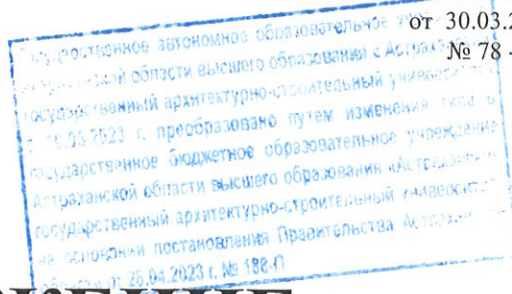 от 30.03.2
№ 78 -
Государственное автономное образовательное
Астраханской области высшего образования «Астраханский
государственный архитектурно-строительный университет»
с 2023 г. преобразовано путем изменения типа в
государственное бюджетное образовательное учреждение
Астраханской области высшего образования «Астраханский
государственный архитектурно-строительный университет»
на основании постановления Правительства
области от 26.04.2023 г. № 188-П